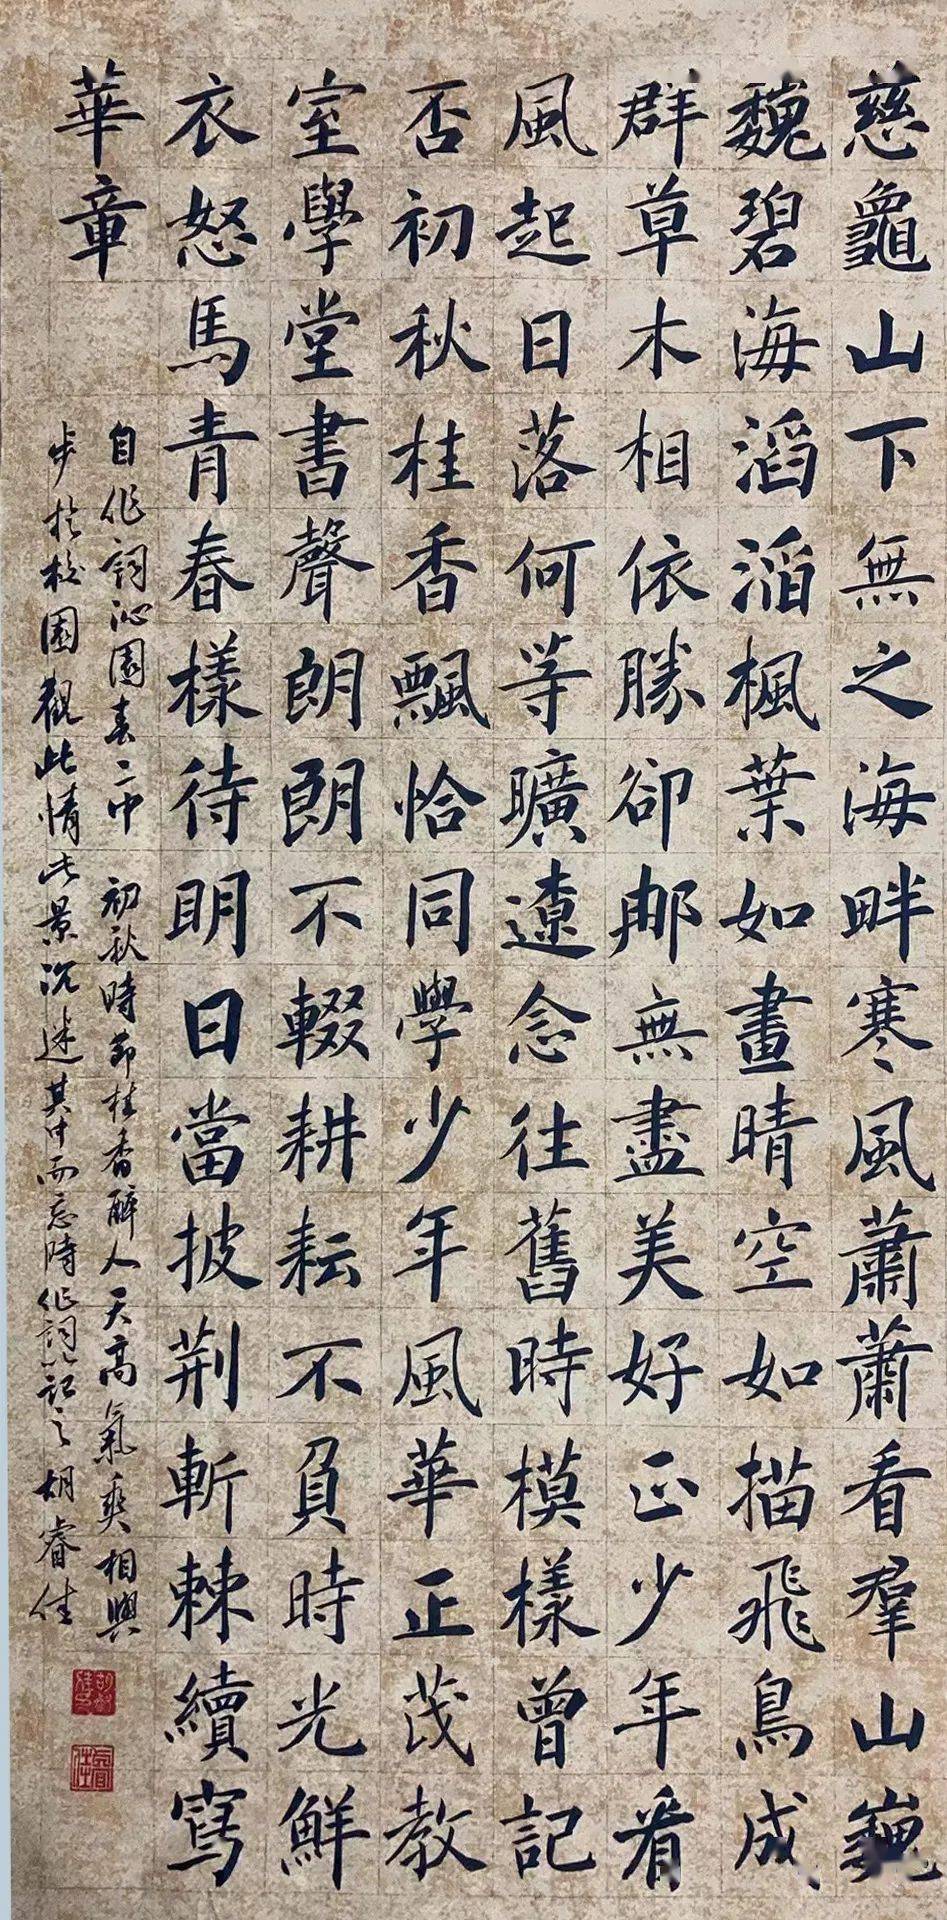 慈龜山下無之海畔寒風蕭蕭看羣山巍
魏碧海滔滔楓葉如畫晴空如描飛鳥成
群草木相依勝卻那無盡美好正少年看
風起日落何等曠遼念往舊時模樣曾記
否初秋桂香飄恰同學少年風華正茂教
室學堂書聲朗朗不輟耕耘不負時光鮮
衣怒馬青春樣待明日當披荆斬棘續寫
華章
自作詞沁園春二中 初秋時節桂香醉人天高氣爽相與
步於校園觀此情此景沉迷其中而忘時作詞以記之胡睿佳